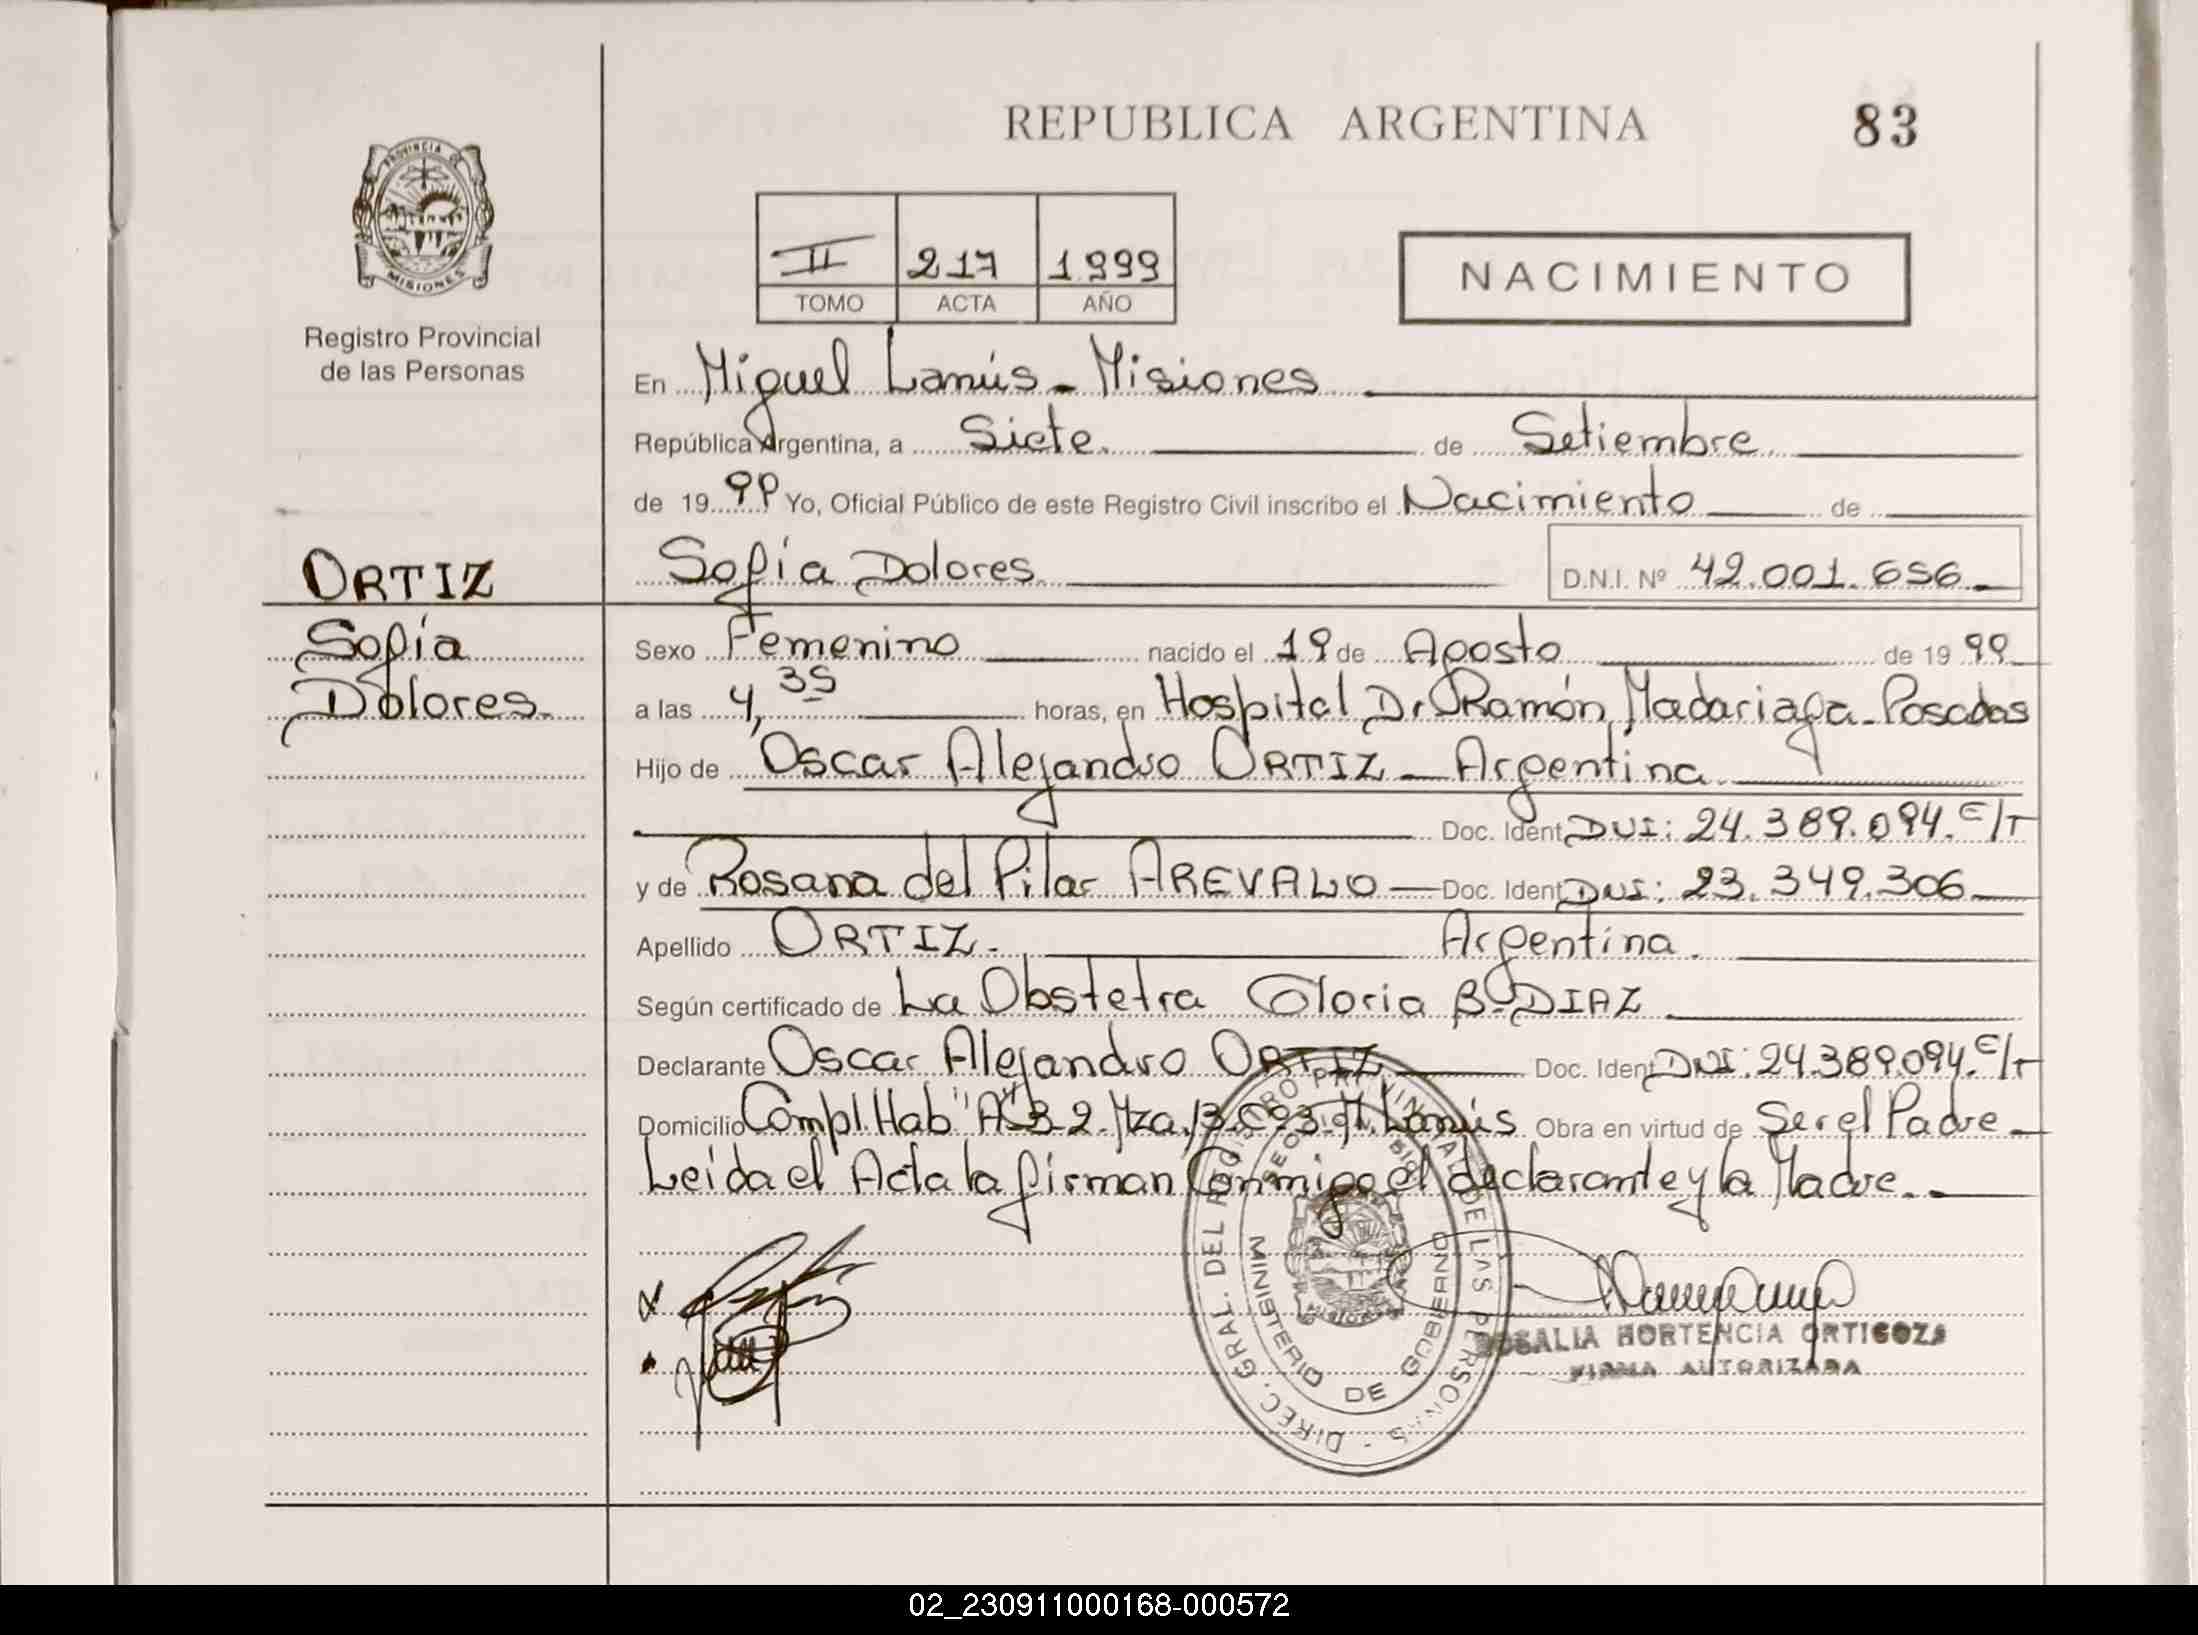 REPUBLICA ARGENTINA
83
PROVINCIA DE
MISIONES
Registro Provincial
de las Personas
II 217 1999
TOMO ACTA AÑO
NACIMIENTO
En Miguel Lanús - Misiones
República Argentina, a Siete. de Setiembre
de 1999 Yo, Oficial Público de este Registro Civil inscribo el Nacimiento de
ORTIZ
Sofía
Dolores.
Sofía Dolores D.N.I. Nº 42.001.656
Sexo Femenino nacido el 19 de Agosto de 1999
a las 4,35 horas, en Hospital Dr Ramón Madariaga - Posadas
Hijo de Oscar Alejandro ORTIZ - Argentina
Doc. Ident DNI: 24.389.094. E/T
y de Rosana del Pilar AREVALO Doc. Ident DNI: 23.349.306
Apellido ORTIZ. Argentina.
Según certificado de La Obstetra Gloria B. DIAZ
Declarante Oscar Alejandro ORTIZ Doc. Ident DNI: 24.389.094. E/T
Domicilio Compl. Hab "A" 3-2. Mza. 13. C 93. M. Lanús Obra en virtud de Ser el Padre
Leída el Acta la firman Conmigo el declarante y la Madre.
DIREC. GRAL. DEL REGISTRO PROVINCIAL DE LAS PERSONAS
MINISTERIO DE GOBIERNO
ROSALIA HORTENCIA ORTIGOZA
FIRMA AUTORIZADA
02_230911000168-000572